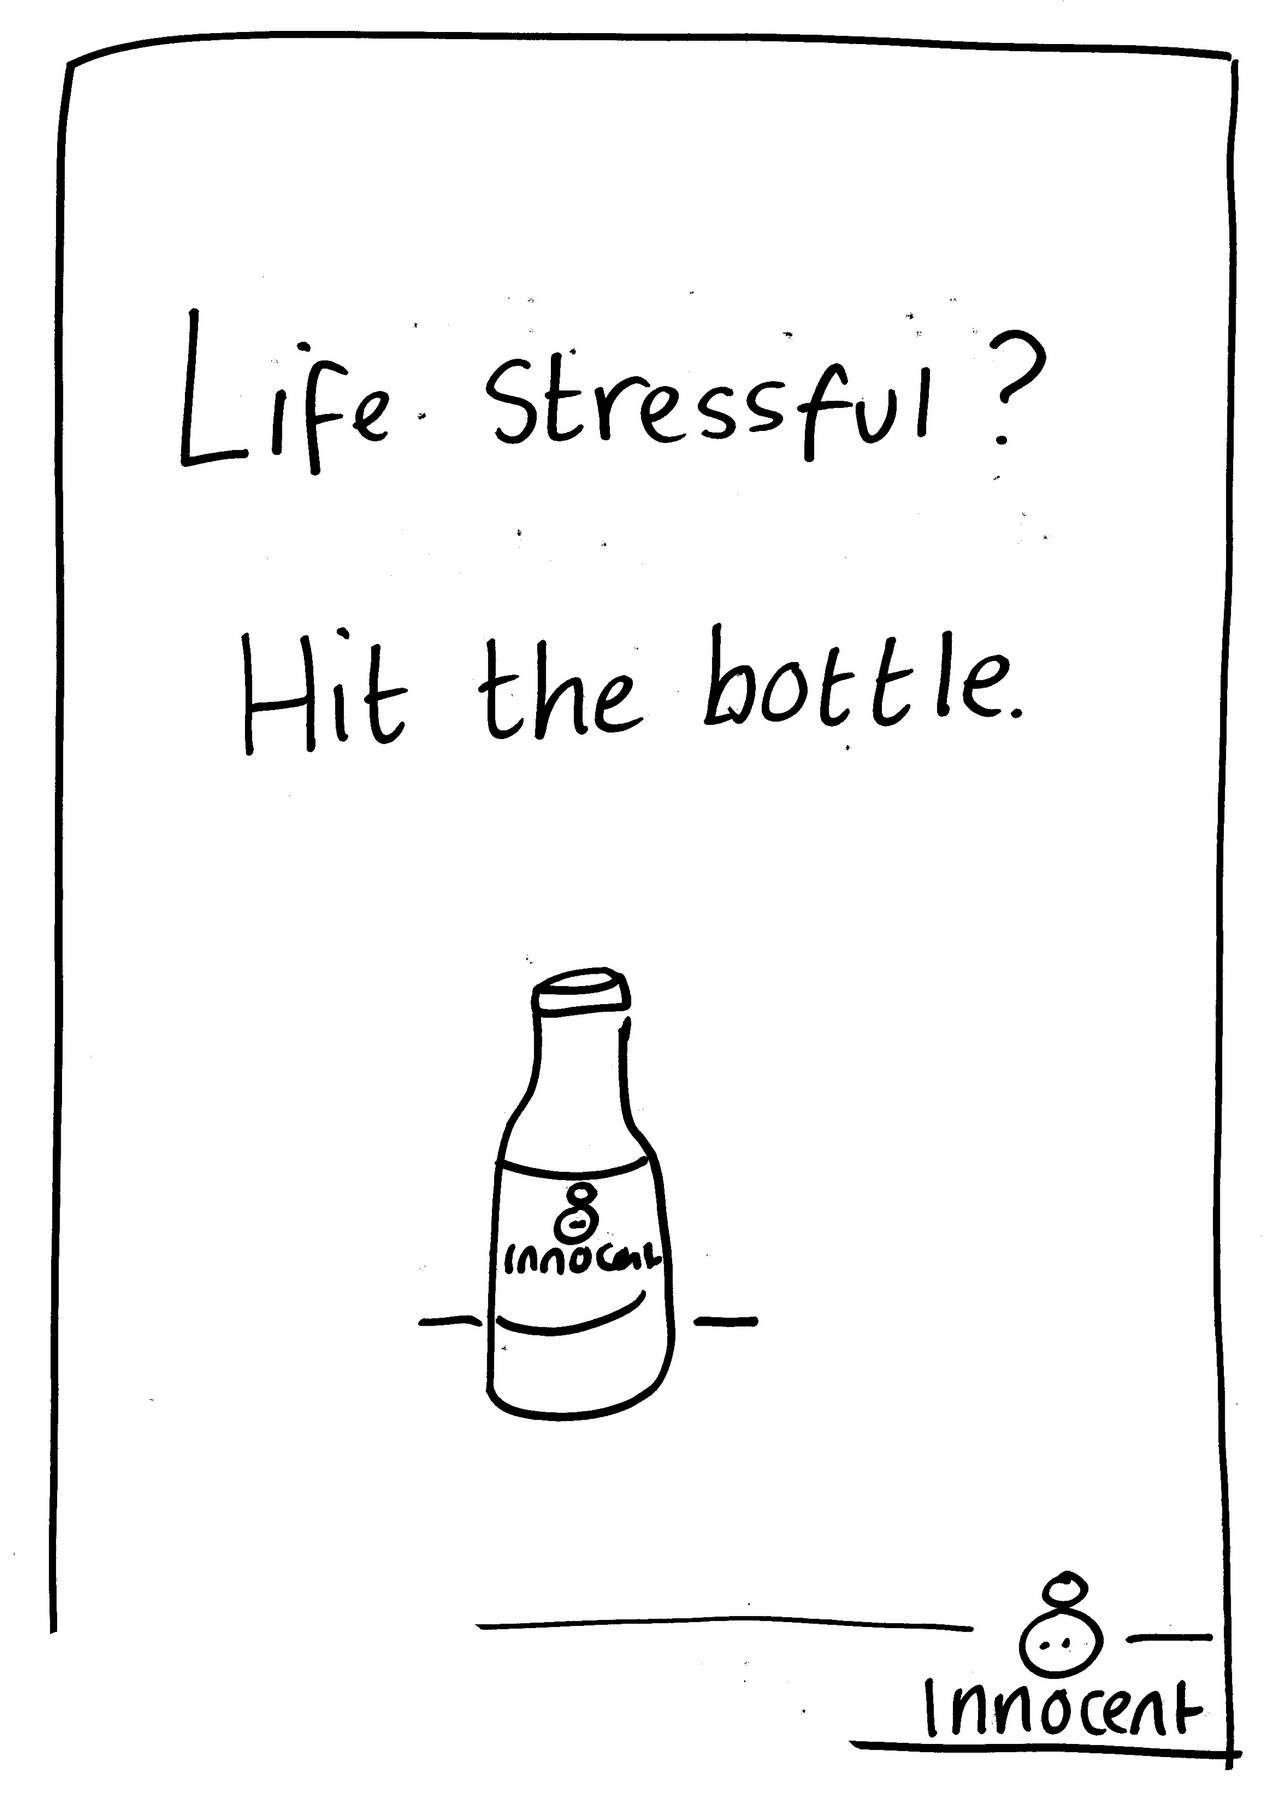 Life Stressful?
Hit the bottle.
Innocent
Innocent